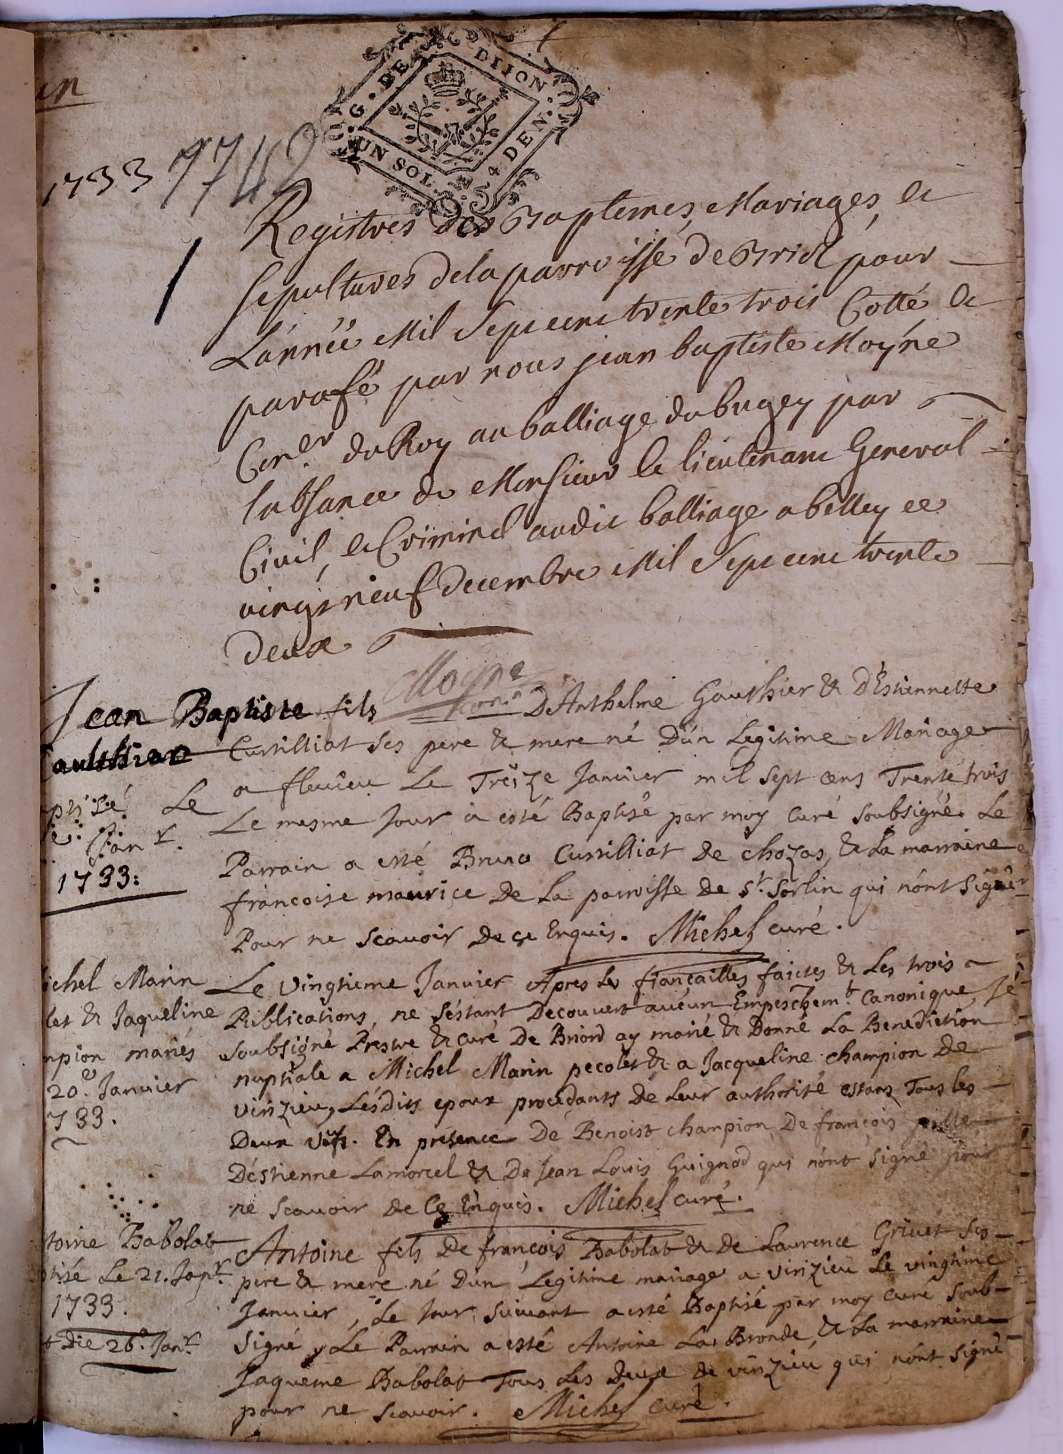 1
G. DE DIJON.
UN SOL. 4 DEN.
1733 7742
Registres des Baptemes, Mariages, et
sepultures de la parroisse de Briod pour
L'année Mil Sept cent trente trois Cotté et
parafé par nous jean baptiste Moyne
Con.er du Roy au balliage du bugey par
labsance de Monsieur le lieutenant General
Civil, et Criminel audit balliage a belley ce
vingt neuf decembre Mil Sept cent trente
deux
Moyne
Jean Baptiste fils D'Anthelme Gauthier & D'Estiennette
aulthier Cussilliat ses pere & mere né D'un Legitime Mariage
a fleuieu Le Treize Janvier mil sept cens Trente trois
Le Le mesme Jour a esté Baptisé par moy curé soubsigné. Le
Janr. Parrain a esté Bruno Cussilliat de chozas, & La marraine
1733: francoise maurice de La parroisse de St. Sorlin qui n'ont signé
Pour ne scavoir de ce Enquis. Michel curé.
ichel Marin Le vingtieme Janvier Apres les fiancailles faictes & Les trois
let & Jaqueline Publications, ne s'estant Decouvert aucun Empeschemt. Canonique, Je
mpion mariés soubsigné Prestre & curé De Briord ay marié & Donné La Benediction
20e. Janvier nuptiale a Michel Marin pecolet & a Jacqueline champion de
733. virizieu, Lesdits epoux procedants de Leur authorité estans Tous les
Deux En presence De Benoist champion, De françois
D'éstienne Lamorcel & De Jean Louis Guignod qui n'ont signé pour
ne scavoir de Ce Enquis. Michel curé.
toine Babolat Antoine fils De françois Babolat & de Laurence Grivet ses
tisé Le 21. Janr. pere & mere né D'un Legitime mariage a virizieu Le vingtime
1733. Janvier, Le Jour suivant a esté Baptisé par moy curé soub-
t die 26a. Janr. signé, Le Parrain a esté Antoine La Bronde, & La marraine
Jaqueme Babolat Tous Les deux de virizieu qui n'ont signé
pour ne scavoir. Michel curé.